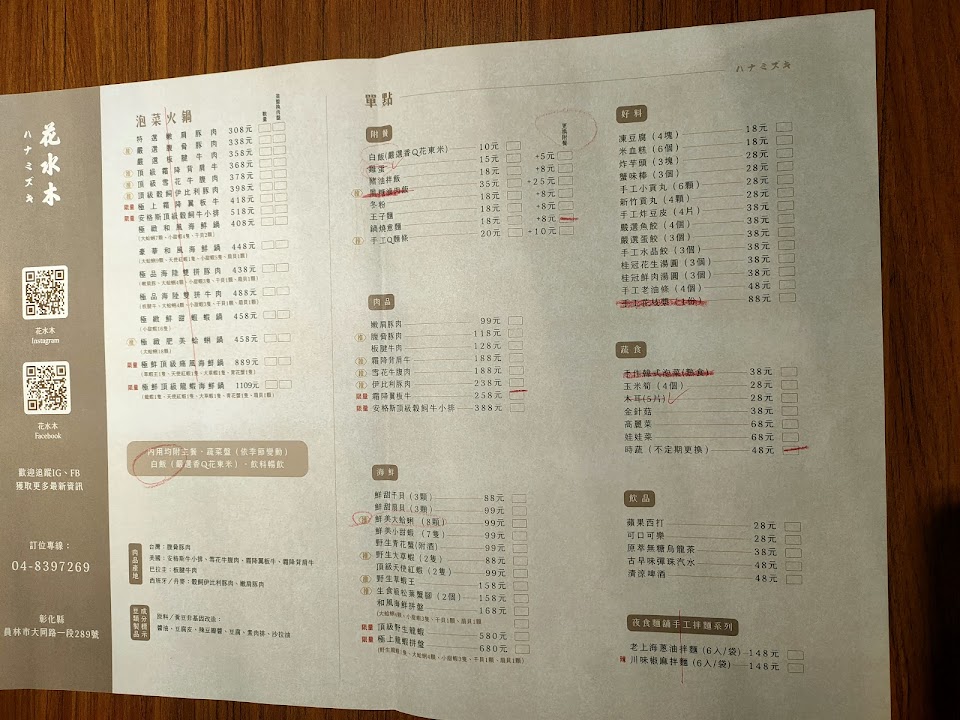 花水木
ハナミズキ
花水木
Instagram
花水木
Facebook
歡迎追蹤IG、FB
獲取更多最新資訊
訂位專線：
04-8397269
彰化縣
員林市大同路一段289號
泡菜火鍋
特選嫩肩豚肉 308元
嚴選腹骨豚肉 338元
嚴選板腱牛肉 358元
頂級霜降背肩牛 368元
頂級雪花牛腹肉 378元
頂級穀飼伊比利豚肉 398元
限量 極上霜降翼板牛 418元
限量 安格斯頂級穀飼牛小排 518元
極緻和風海鮮鍋 408元
豪華和風海鮮鍋 448元
極品海陸雙拼豚肉 438元
極品海陸雙拼牛肉 488元
極緻鮮甜蝦蝦鍋 458元
(小甜蝦16隻)
極緻肥美蛤蜊鍋 458元
(大蛤蜊18顆)
限量 極鮮頂級痛風海鮮鍋 889元
限量 極鮮頂級龍蝦海鮮鍋 1109元
內用均附主餐、蔬菜盤（依季節變動）
白飯（嚴選香Q花東米）、飲料暢飲
肉品產地
台灣：腹骨豚肉
美國：安格斯牛小排、雪花牛腹肉、霜降翼板牛、霜降背肩牛
巴拉圭：板腱牛肉
西班牙/丹麥：穀飼伊比利豚肉、嫩肩豚肉
豆類製品成分標示
原料/養豆非基因改造：
醬油、豆腐皮、辣豆瓣醬、豆腐、素肉排、沙拉油
單點
附餐
更換附餐
白飯(嚴選香Q花東米) 10元
雞蛋 15元 +5元
豬油拌飯 18元 +8元
35元 +25元
冬粉 18元 +8元
王子麵 18元 +8元
鍋燒意麵 18元 +8元
手工Q麵條 20元 +10元
肉品
嫩肩豚肉 99元
腹骨豚肉 118元
板腱牛肉 128元
霜降背肩牛 168元
雪花牛腹肉 188元
伊比利豚肉 238元
限量 霜降翼板牛 258元
限量 安格斯頂級穀飼牛小排 388元
海鮮
鮮甜干貝（3顆） 88元
鮮甜扇貝（3顆） 99元
鮮美大蛤蜊（8顆） 99元
鮮美小甜蝦（7隻） 99元
野生青花蟹(附酒) 99元
野生大草蝦（2隻） 88元
頂級天使紅蝦（2隻） 99元
野生草蝦王 158元
生食級松葉蟹腳（2個） 158元
和風海鮮拼盤 168元
限量 頂級野生龍蝦 580元
限量 極上龍蝦拼盤 680元
ハナミズキ
好料
凍豆腐（4塊） 18元
米血糕（6個） 18元
炸芋頭（3塊） 28元
蟹味棒（3個） 28元
手工小貢丸（6顆） 28元
新竹貢丸（4顆） 28元
手工炸豆皮（4片） 38元
嚴選魚餃（4個） 38元
嚴選蛋餃（3個） 38元
手工水晶餃（3個） 38元
桂冠花生湯圓（3個） 38元
桂冠鮮肉湯圓（3個） 38元
手工老油條（4個） 48元
手工花枝漿（1份） 88元
蔬食
手作韓式泡菜(熟食) 38元
玉米筍（4個） 28元
木耳(5片) 28元
金針菇 38元
高麗菜 68元
娃娃菜 68元
時蔬（不定期更換） 48元
飲品
蘋果西打 28元
可口可樂 28元
原萃無糖烏龍茶 38元
古早味彈珠汽水 48元
清涼啤酒 48元
夜食麵舖手工拌麵系列
老上海蔥油拌麵（6人/袋） 148元
辣 川味椒麻拌麵（6人/袋） 148元